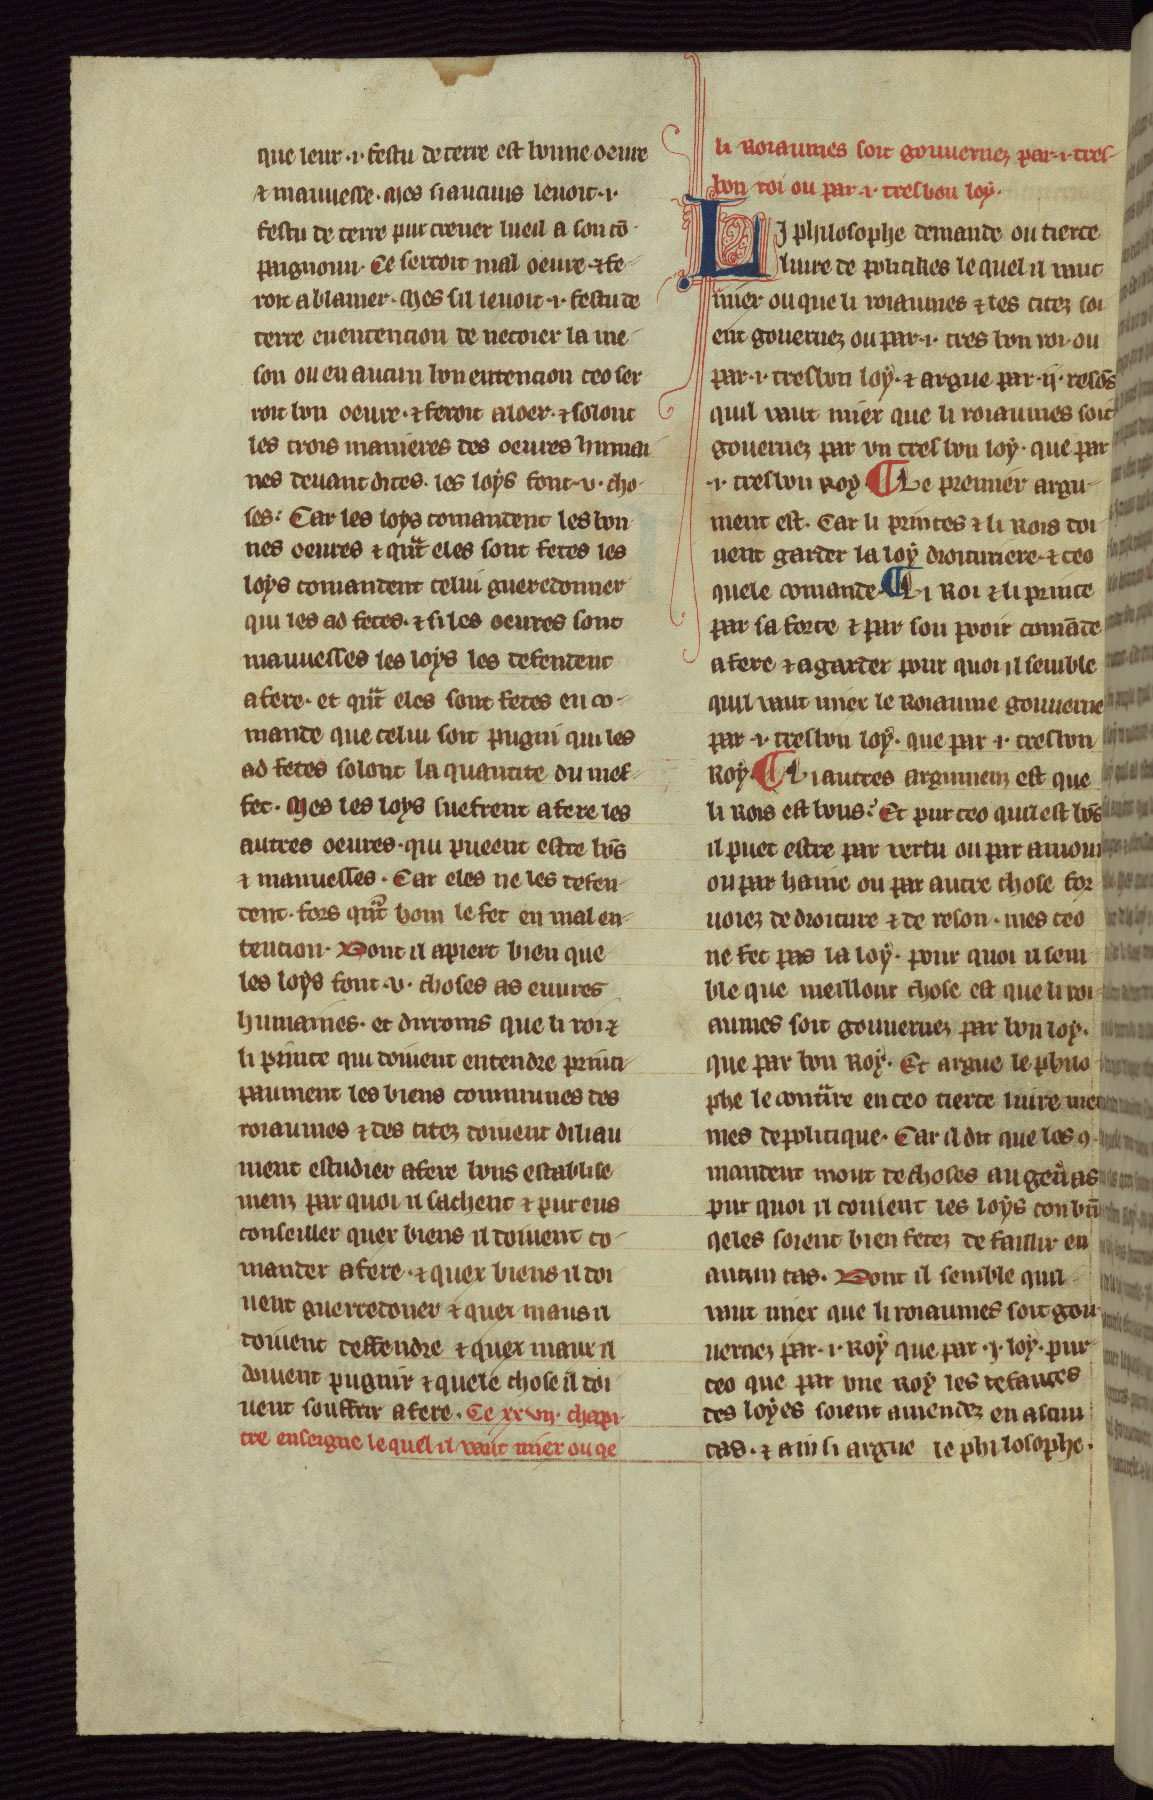 que leur ·i· festu de terre est bonne oeure
⁊ mauuesse· Mes si aucuns leuoit ·i·
festu de terre pur creuer lueil a son cō
paignonn· Ce serroit mal oeure ·⁊ fe
roit a blamer· Mes sil leuoit ·i· festu de
terre en entencion de netoier la me
son ou en aucun bon entencion ceo ser
roit bon oeure ·⁊ feroit a loer· ⁊ solont
les trois manieres des oeures humai
nes deuant dites· les loẏs font ·v· cho
ses: Car les loẏs comandent les bon
nes oeures ⁊ qūt eles sont fetes les
loẏs comandent celui gueredonner
qui les ad fetes· ⁊ si les oeures sont
mauuesses les loẏs les defendent
a fere· et qūt eles sont fetes en co
mande que celui soit pugni qui les
ad fetes solont la quantite du mes
fet· Mes les loẏs suefrent a fere les
autres oeures· qui pueent estre bōs
⁊ mauuesses· Car eles ne les defen
dent· fors qūt hom le fet en mal en
tencion· Dont il apiert bien que
les loẏs font ·v· choses as euures
humaines· et dirroms que li roi ⁊
li prince qui doiuent entendre princi
paument les biens communes des
roiaumes ⁊ des citez doiuent diliau
ment estudier a fere bons establise
menz par quoi il sachent ⁊ pur eus
conseiller quex biens il doiuent co
mander a fere· ⁊ quex biens il doi
uent guerredoner ⁊ quex maus il
doiuent deffendre ⁊ quex maux il
doiuent pugnir ⁊ quele chose il doi
uent souffrir a fere· Ce xxvij· chapi
tre enseigne le quel il vaut miex ou qe
li Roiaumes soit gouuernez par ·i· tres
bon roi ou par ·i· tresbon loẏ·
LI philosophe demande ou tierce
liuire de politikes le quel il vaut
miex ou que li roiaumes ⁊ les citez soi
ent gouuernez ou par ·i· tres bon roi· ou
par ·i· tresbon loẏ· ⁊ argue par ·ij· resōs
quil vaut miex que li roiaumes soit
gouuernez par vn tres bon loẏ· que par
·i· tresbon Roẏ ¶ Le premier argu
ment est· Car li princes ⁊ li Rois doi
uent garder la loẏ droituriere· ⁊ ceo
quele comande· ¶ Li Roi ⁊ li prince
par sa force ⁊ par son pooir comāde
a fere ⁊ a garder pour quoi il semble
quil vaut miex le Roiaume gouuerne
par ·i· tresbon loẏ· que par ·i· tresbon
Roẏ· ¶ Li autres argumenz est que
li Rois est bons: Et pur ceo quil est bōs
il puet estre par vertu ou par amour
ou par haine ou par autre chose for
uoiez de droiture ⁊ de reson· mes ceo
ne fet pas la loẏ· pour quoi il sem
ble que meillour chose est que li roi
aumes soit gouuernez par bon loẏ·
que par bon Roẏ· Et argue le philo
phe le contire en ceo tierce liuire me
mes de politique· Car il dit que les 9
mandent mout de choses an gen̄as
pur quoi il couient les loẏs con bn̄
qeles soient bien fetez de faillir en
aucun cas· Dont il semble quil
vaut miex que li roiaumes soit gou
uernez par ·i· Roẏ que par ·j· loẏ· pur
ceo que par vne Roẏ les defautes
des loẏes soient amendez en ascun
cas· ⁊ ainsi argue le philosophe·